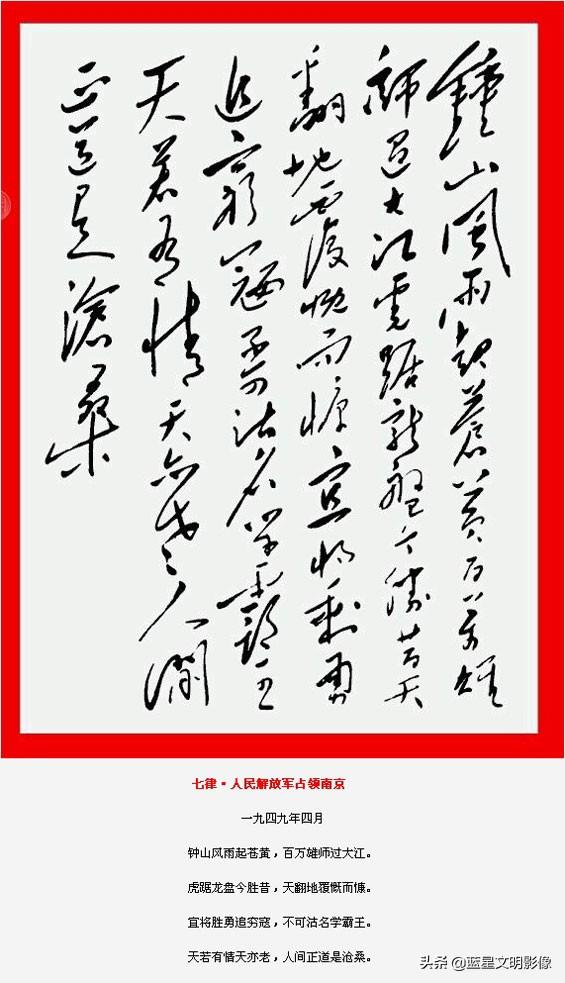 鍾山風雨起蒼黃百萬雄
師過大江虎踞龍盤今勝昔天
翻地覆慨而慷宜將剩勇
追窮寇不可沽名學霸王
天若有情天亦老人間
正道是滄桑
七律·人民解放军占领南京
一九四九年四月
钟山风雨起苍黄，百万雄师过大江。
虎踞龙盘今胜昔，天翻地覆慨而慷。
宜将胜勇追穷寇，不可沽名学霸王。
天若有情天亦老，人间正道是沧桑。
头条 @蓝星文明影像